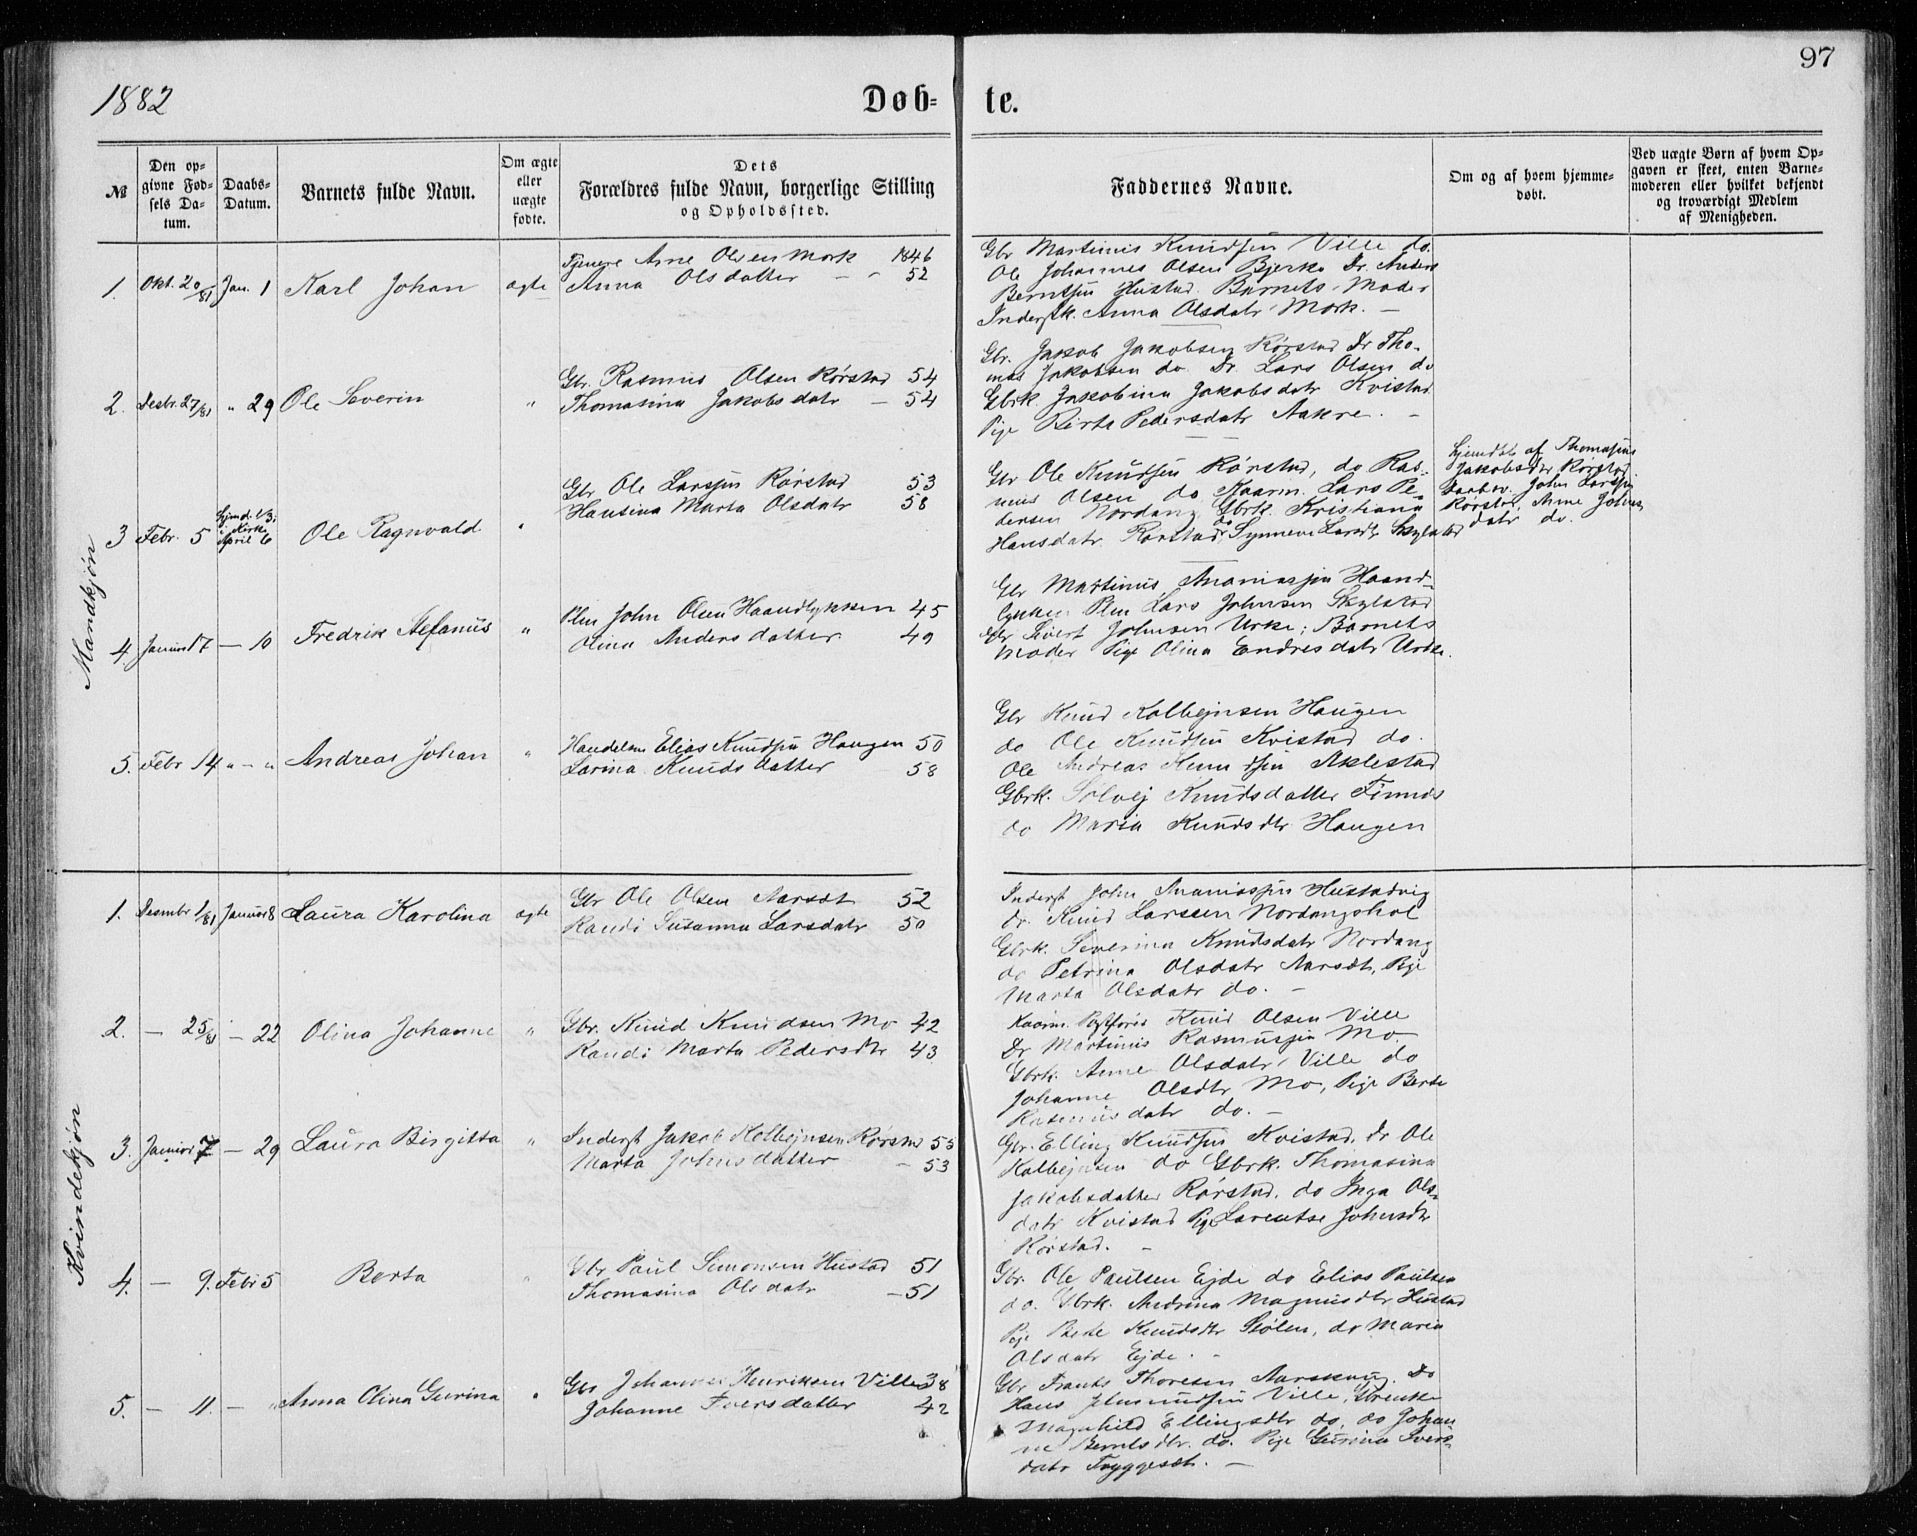 97
1882
Døb- te.
№
Den opgivne Fødsels Datum.
Daabs-Datum.
Barnets fulde Navn.
Om ægte eller uægte fødte.
Dets Forældres fulde Navn, borgerlige Stilling og Opholdssted.
Faddernes Navne.
Om og af hvem hjemmedøbt.
Ved uægte Børn af hvem Opgaven er skeet, enten Barnemoderen eller hvilket bekjendt og troværdigt Medlem af Menigheden.
Mandkjøn
1. Okt. 20/81 Jan. 1 Karl Johan ægte
Arne Olsen Mork 1846
Anna Olsdatter - - 52
Gbr Martinus Knudsen Ville do.
Ole Johannes Olsen Bjerke Dr. Anders
Berntsen Hustad. Barnets Moder
Inderstk. Anna Olsdatr Mork. -
2. Desbr. 27/81 " 29 Ole Severin "
Gbr. Rasmus Olsen Rørstad 54
Thomasina Jakobsdatr - 54
Gbr. Jakob Jakobsen Rørstad Dr Tho-
mas Jakobsen do. Dr. Lars Olsen do
Gbrk Jakobina Jakobsdatr Kvistad
Pige Berta Pedersdatr Aakre. -
3 Febr. 5 Hjmd. 1/3 i Kirke April 6 Ole Ragnvald "
Gbr Ole Larssen Rørstad 53
Hansina Marta Olsdatr 58
Gbr Ole Knudsen Rørstad, do Ras-
mus Olsen do Kaarm. Lars Pe-
dersen Nordang Gbrk. Kristiana
Hansdatr. Rørstad, do Synneve Larsdtr Skylstad
Hjemdbt af Thomasine
Jakobsdtr Rørstad.
Daabsv. John Larssen
Rørstad, Anne Johns
datr do.
4. Januar 17 - 10 Fredrik Stefanus "
John Olsen Haandlykken 45
Olina Andersdatter 49
Gbr Martinus Ananiassen Haand-
lykken Lars Johnsen Skylstad
Gbr Sivert Johnsen Urke; Barnets
Moder Pige Olina Endresdatr Urke.
5. Febr 14 " - " Andreas Johan "
Handelsm Elias Knudsen Haugen 50
Larina Knudsdatter 58
Gbr Knud Kolbejnsen Haugen
do Ole Knudsen Kvistad do.
Ole Andreas Knudsen Aklestad
Gbrk. Solvej Knudsdatter Finnes
do Maria Knudsdtr Haugen
Kvindekjøn
1. Desembr 1/81 Januar 8 Laura Karolina ægte
Gbr Ole Olsen Aarsæt 52
Randi Susanna Larsdatr 50
Inderst John Ananiassen Hustadvig
Dr. Knud Larssen Nordangshol
Gbrk. Severina Knudsdatr Nordang
do Petrina Olsdatr Aarsæt, Pige
Marta Olsdatr do. -
2. - 25/81 - 22 Olina Johanne "
Gbr. Knud Knudsen Mo 42
Randi Marta Pedersdtr 43
Kaarm. Knud Olsen Ville
Dr Martinus Rasmussen Mo.
Gbrk. Anne Olsdatr Ville do
Johanne Olsdtr Mo, Pige Berte
Rasmusdatr do. -
3. Januar 7 - 29 Laura Birgitta "
Inderst Jakob Kolbejnsen Rørstad 55
Marta Johnsdatter - 53
Gbr. Elling Knudsen Kvistad. Dr Ole
Kolbejnsen do Gbrk. Thomasina
Jakobsdatter Rørstad. do Inga Ols-
datr Kvistad Pige Larentse Johnsdtr
Rørstad. -
4. - 9. Febr 5 Berta "
Gbr Paul Simonsen Hustad 51
Thomasina Olsdatr - 51
Gbr. Ole Paulsen Ejde do Elias Paulsen
do. Gbrk. Andrina Magnusdtr Hustad
Pige Berte Knudsdtr Stølen, do Maria
Olsdatr Ejde. -
5. - 11. - " Anna Olina Gurina "
Gbr Johannes Henriksen Ville 38
Johanne Iversdatter 42
Gbr Frants Thoresen Aarskoug. Do
Hans Ville, Gbrenke
Magnhild Ellingsdtr do, do Johan
ne Berntsdtr. do. Pige Gurina Ivers-
datr Tryggesæt. -